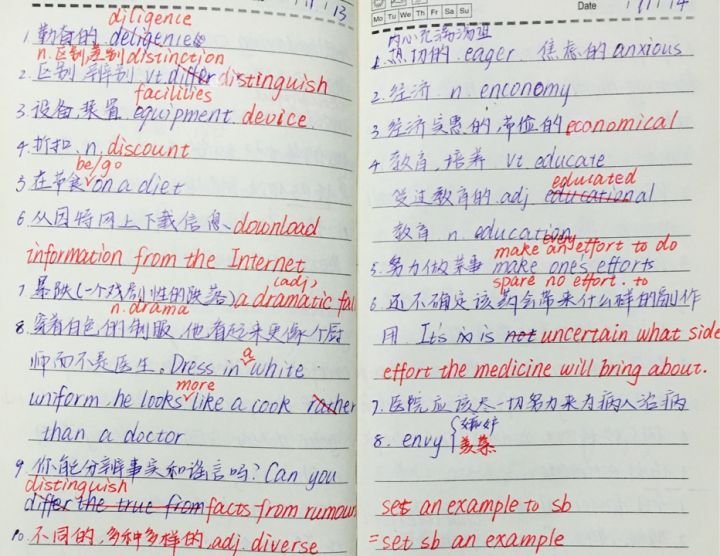 13
diligence
1. 勤奋的 deligence
n. 区别,差别 distinction
2. 区别 辨别 vt. differ distinguish
facilities
3. 设备,装置 equipment. device.
4. 折扣. n. discount
be/go
5 在节食 on a diet
6 从因特网上下载信息 download
information from the Internet
(adj)
7. 暴跌(一个戏剧性的跌落) a dramatic fal
n. drama
8. 穿着白色的制服,他看起来更像个厨
师而不是医生。Dress in a white
more
uniform, he looks like a cook rather
than a doctor
9. 你能分辨事实和谣言吗? Can you
distinguish
differ the true from facts from rumours
10. 不同的,多种多样的. adj. diverse
Mo Tu We Th Fr Sa Su
Date 14
内心充满渴望
1. 热切的. eager 焦虑的 anxious
2. 经济 n. enconomy
3 经济实惠的,节俭的 economical
4. 教育,培养 vt. educate
educated
受过教育的 adj educational
教育 n. education
make every effort to do
5. 努力做某事 make one's efforts
spare no effort. to
6 还不确定该药会带来什么样的副作
用 It's is not uncertain what side
effort the medicine will bring about.
7. 医院应该尽一切努力来为病人治病
8. envy { 嫉妒
羡慕
set an example to sb
= set sb an example